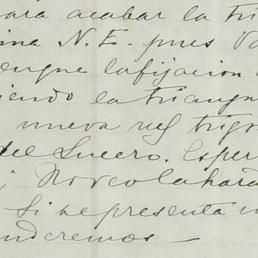 para acabar la tri
ina N.E. pues Va
engue la fijacion
iendo la triangu
nueva red trigo
del Lucero. Esper
Noreo la hará
Si se presenta
ndremos —